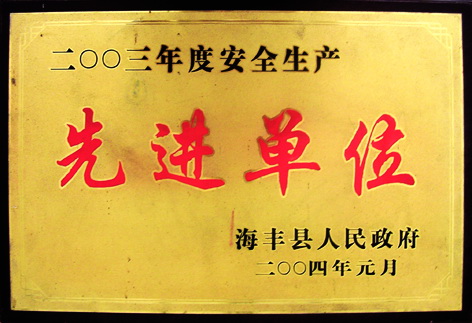 二〇〇三年度安全生产
先进单位
海丰县人民政府
二〇〇四年元月